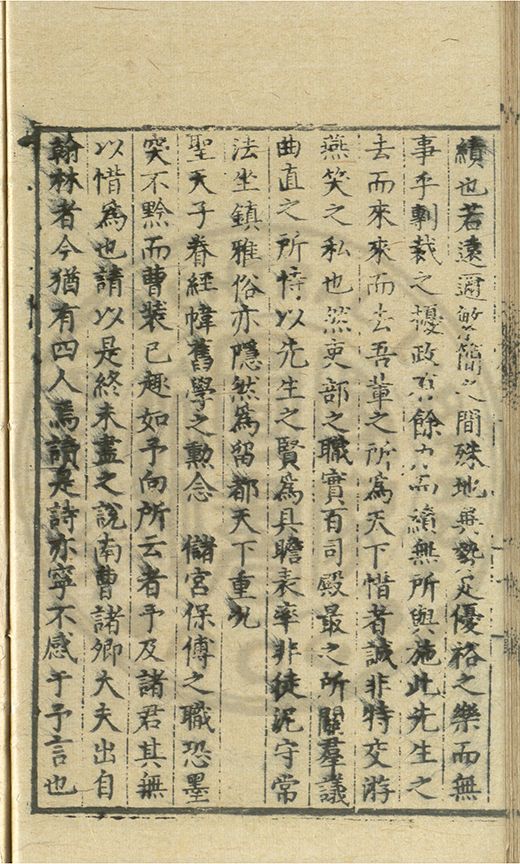 績也若遠邇繁簡之間殊地異勢足優裕之樂而無
事乎剸裁之擾政有餘力而績無所與施此先生之
去而來來而去吾輩之所為天下惜者誠非特交游
燕笑之私也然吏部之職實百司殿最之所關羣議
曲直之所恃以先生之賢為具瞻表率非徒泥守常
法坐鎮雅俗亦隱然為留都天下重九
聖天子眷經幃舊學之勳念 儲宮保傅之職恐墨
突不黔而曹裝已趣如予向所云者乎及諸君其無
以惜為也請以是終未盡之說南曹諸卿大夫出自
翰林者今猶有四人焉讀是詩亦寧不感于予言也